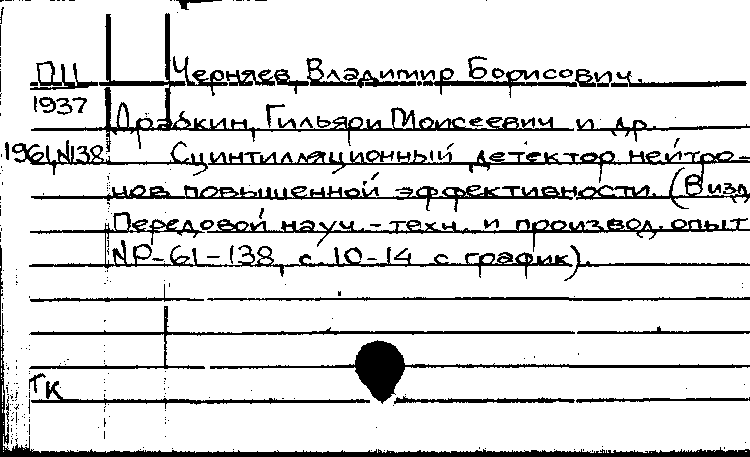 П11 Черняев, Владимир Борисович.
1937 Драбкин, Гильяри Моисеевич и др.
1961,N138. Сцинтилляционный детектор нейтро-
нов повышенной эффективности. (В изд.
Передовой науч.-техн. и производ. опыт
NР-61-138, с. 10-14 с график).
ТК